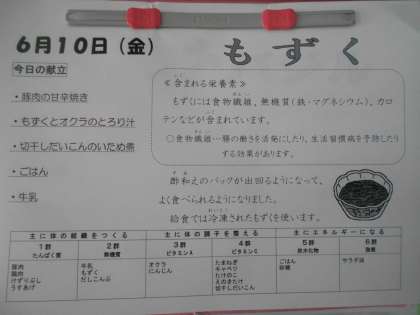 6月10日(金)
もずく
今日の献立
・豚肉の甘辛焼き
・もずくとオクラのとろり汁
・切干しだいこんのいため煮
・ごはん
・牛乳
≪含まれる栄養素≫
もずくには食物繊維、無機質(鉄・マグネシウム)、カロ
テンなどが含まれています。
○食物繊維…腸の働きを活発にしたり、生活習慣病を予防したり
する効果があります。
酢和えのパックが出回るようになって、
よく食べられるようになりました。
給食では冷凍されたもずくを使います。
主に体の組織をつくる 主に体の調子を整える 主にエネルギーになる
1群 2群 3群 4群 5群 6群
たんぱく質 無機質 ビタミンA ビタミンC 炭水化物 脂質
豚肉 牛乳 オクラ たまねぎ ごはん サラダ油
豚肉 もずく にんじん キャベツ 砂糖
けずりぶし だしこんぶ たけのこ
うすあげ えのきたけ
切干しだいこん